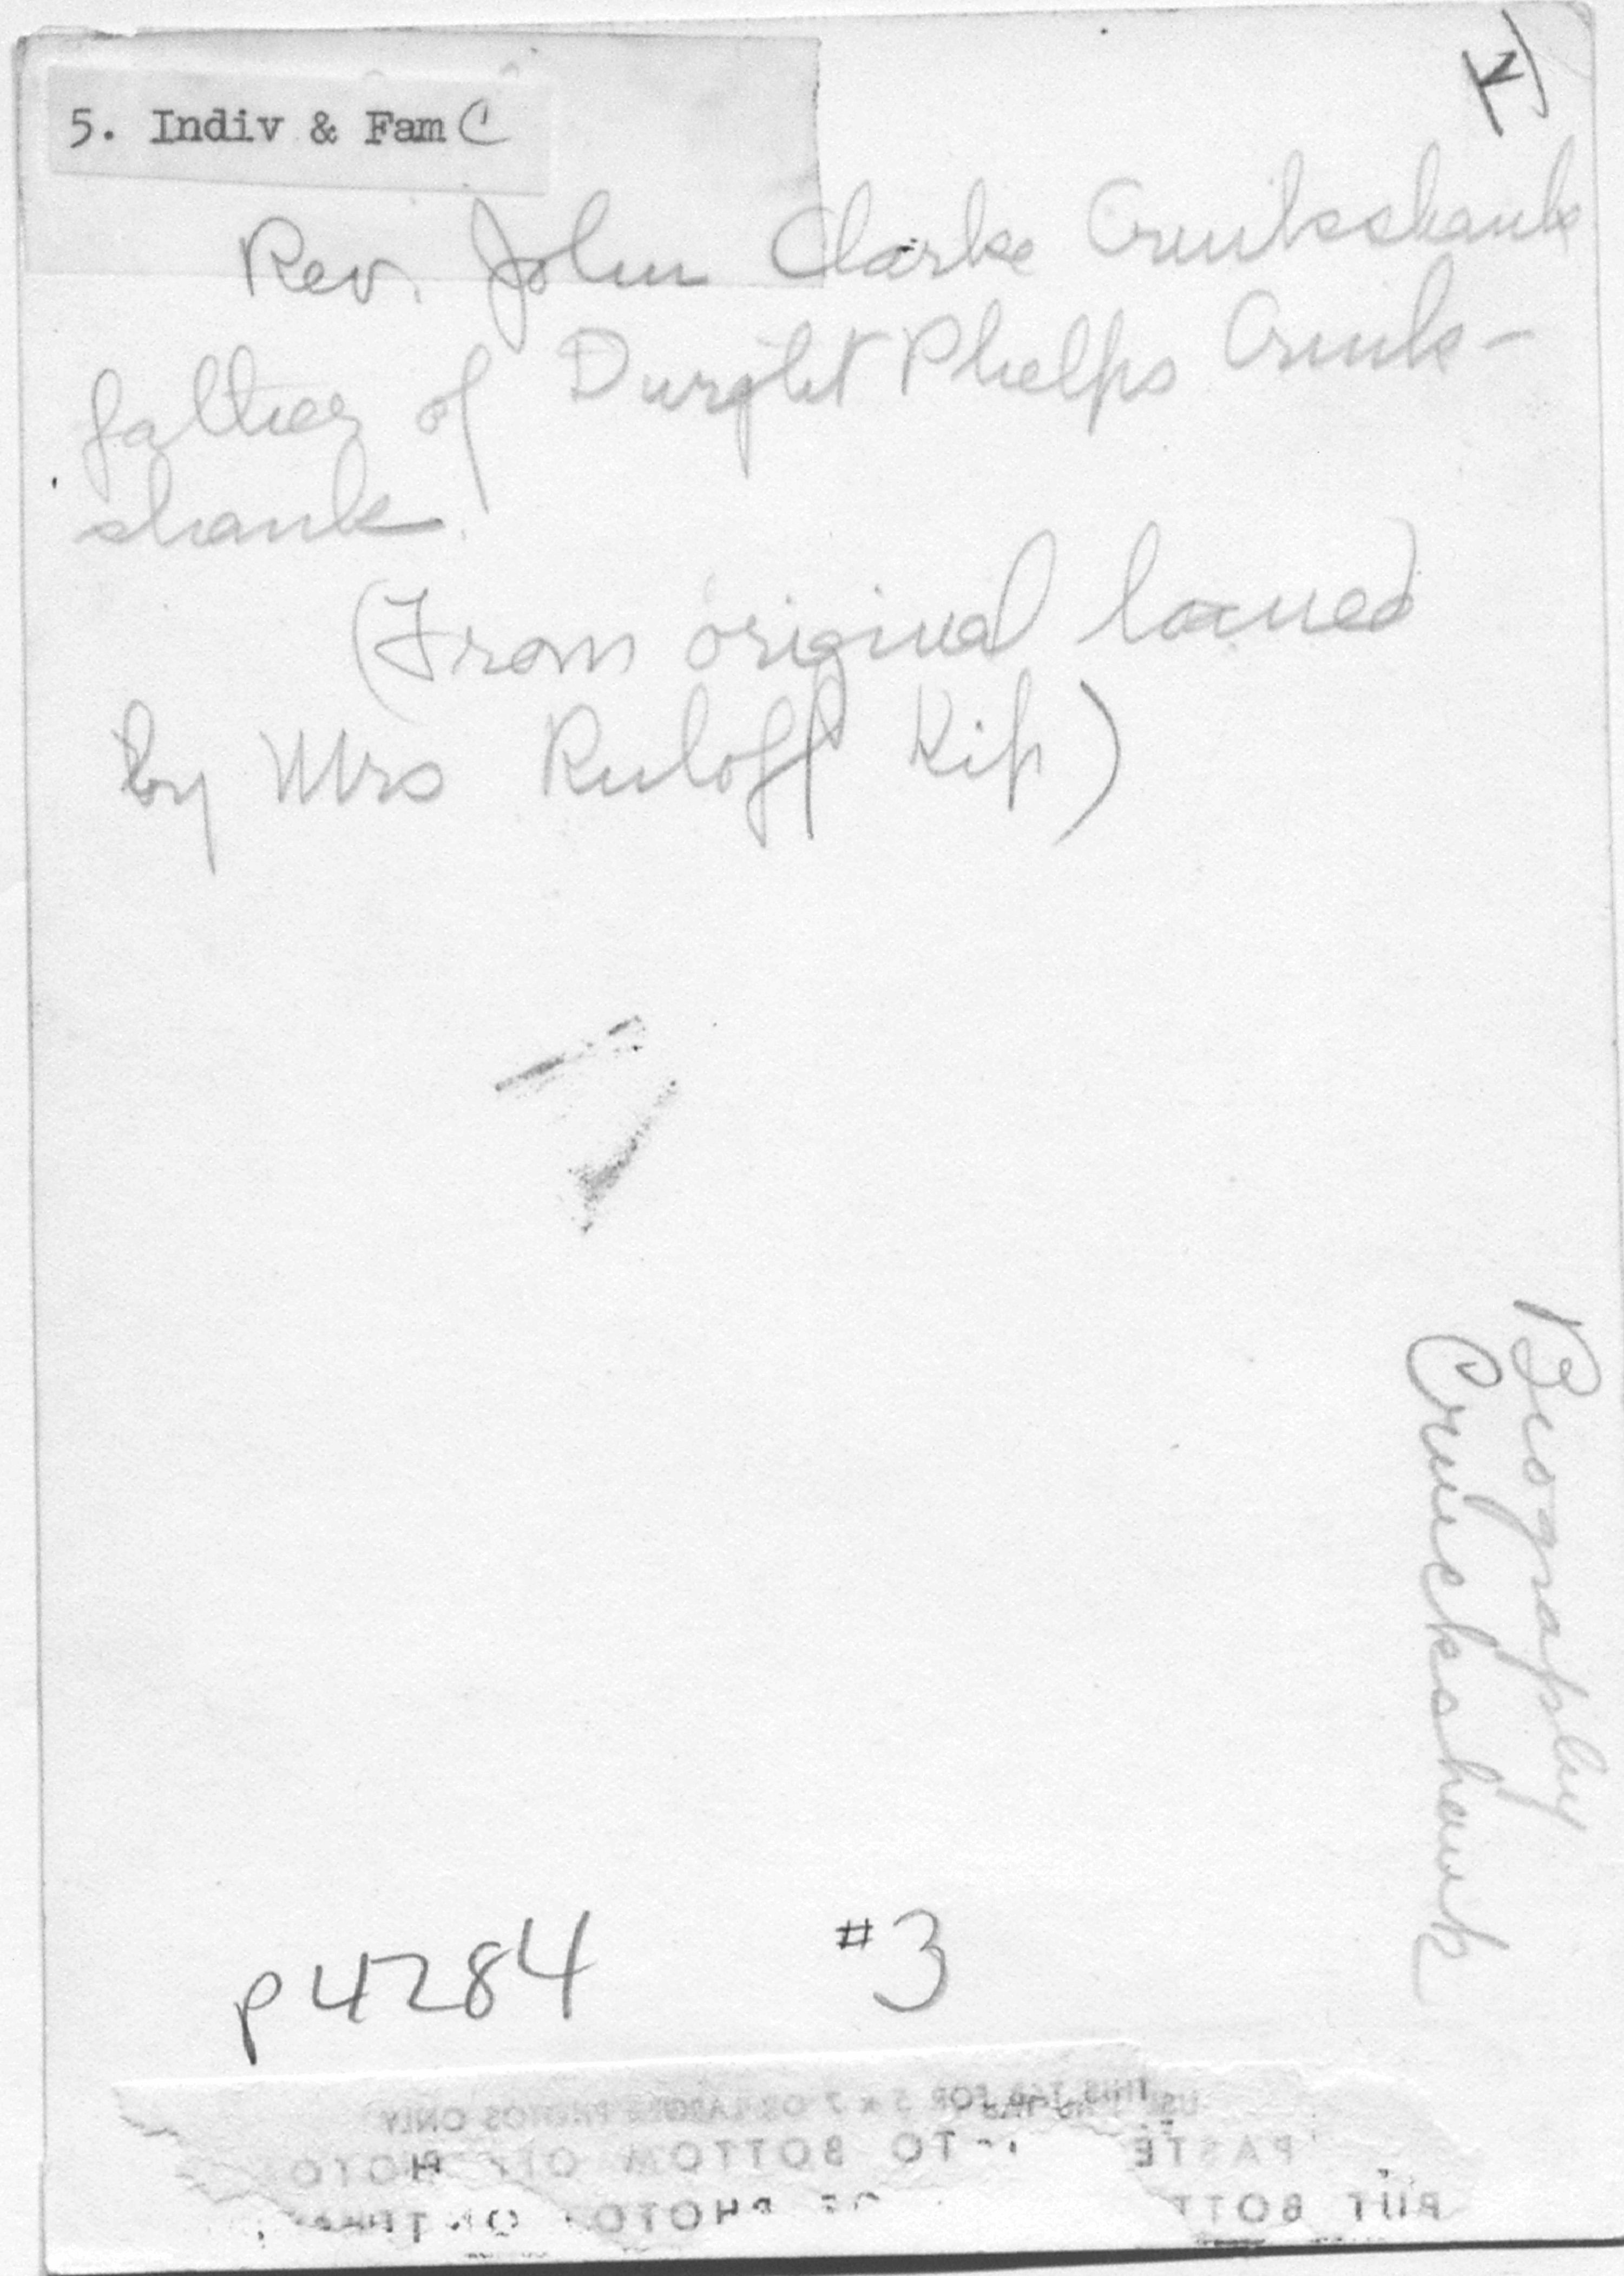 5. Indiv & Fam C
K
Rev. John Clarke Cruiksshank
father of Dwight Phelps Cruik-
shank.
(From original loaned
by Mrs Ruloff Kip)
Biography
Cruickshank
p4284 #3
USE THIS TAB FOR 5 x 7 OR LARGER PHOTOS ONLY
PASTE TO BOTTOM OF PHOTO
PUT BOTT OF PHOTO ON